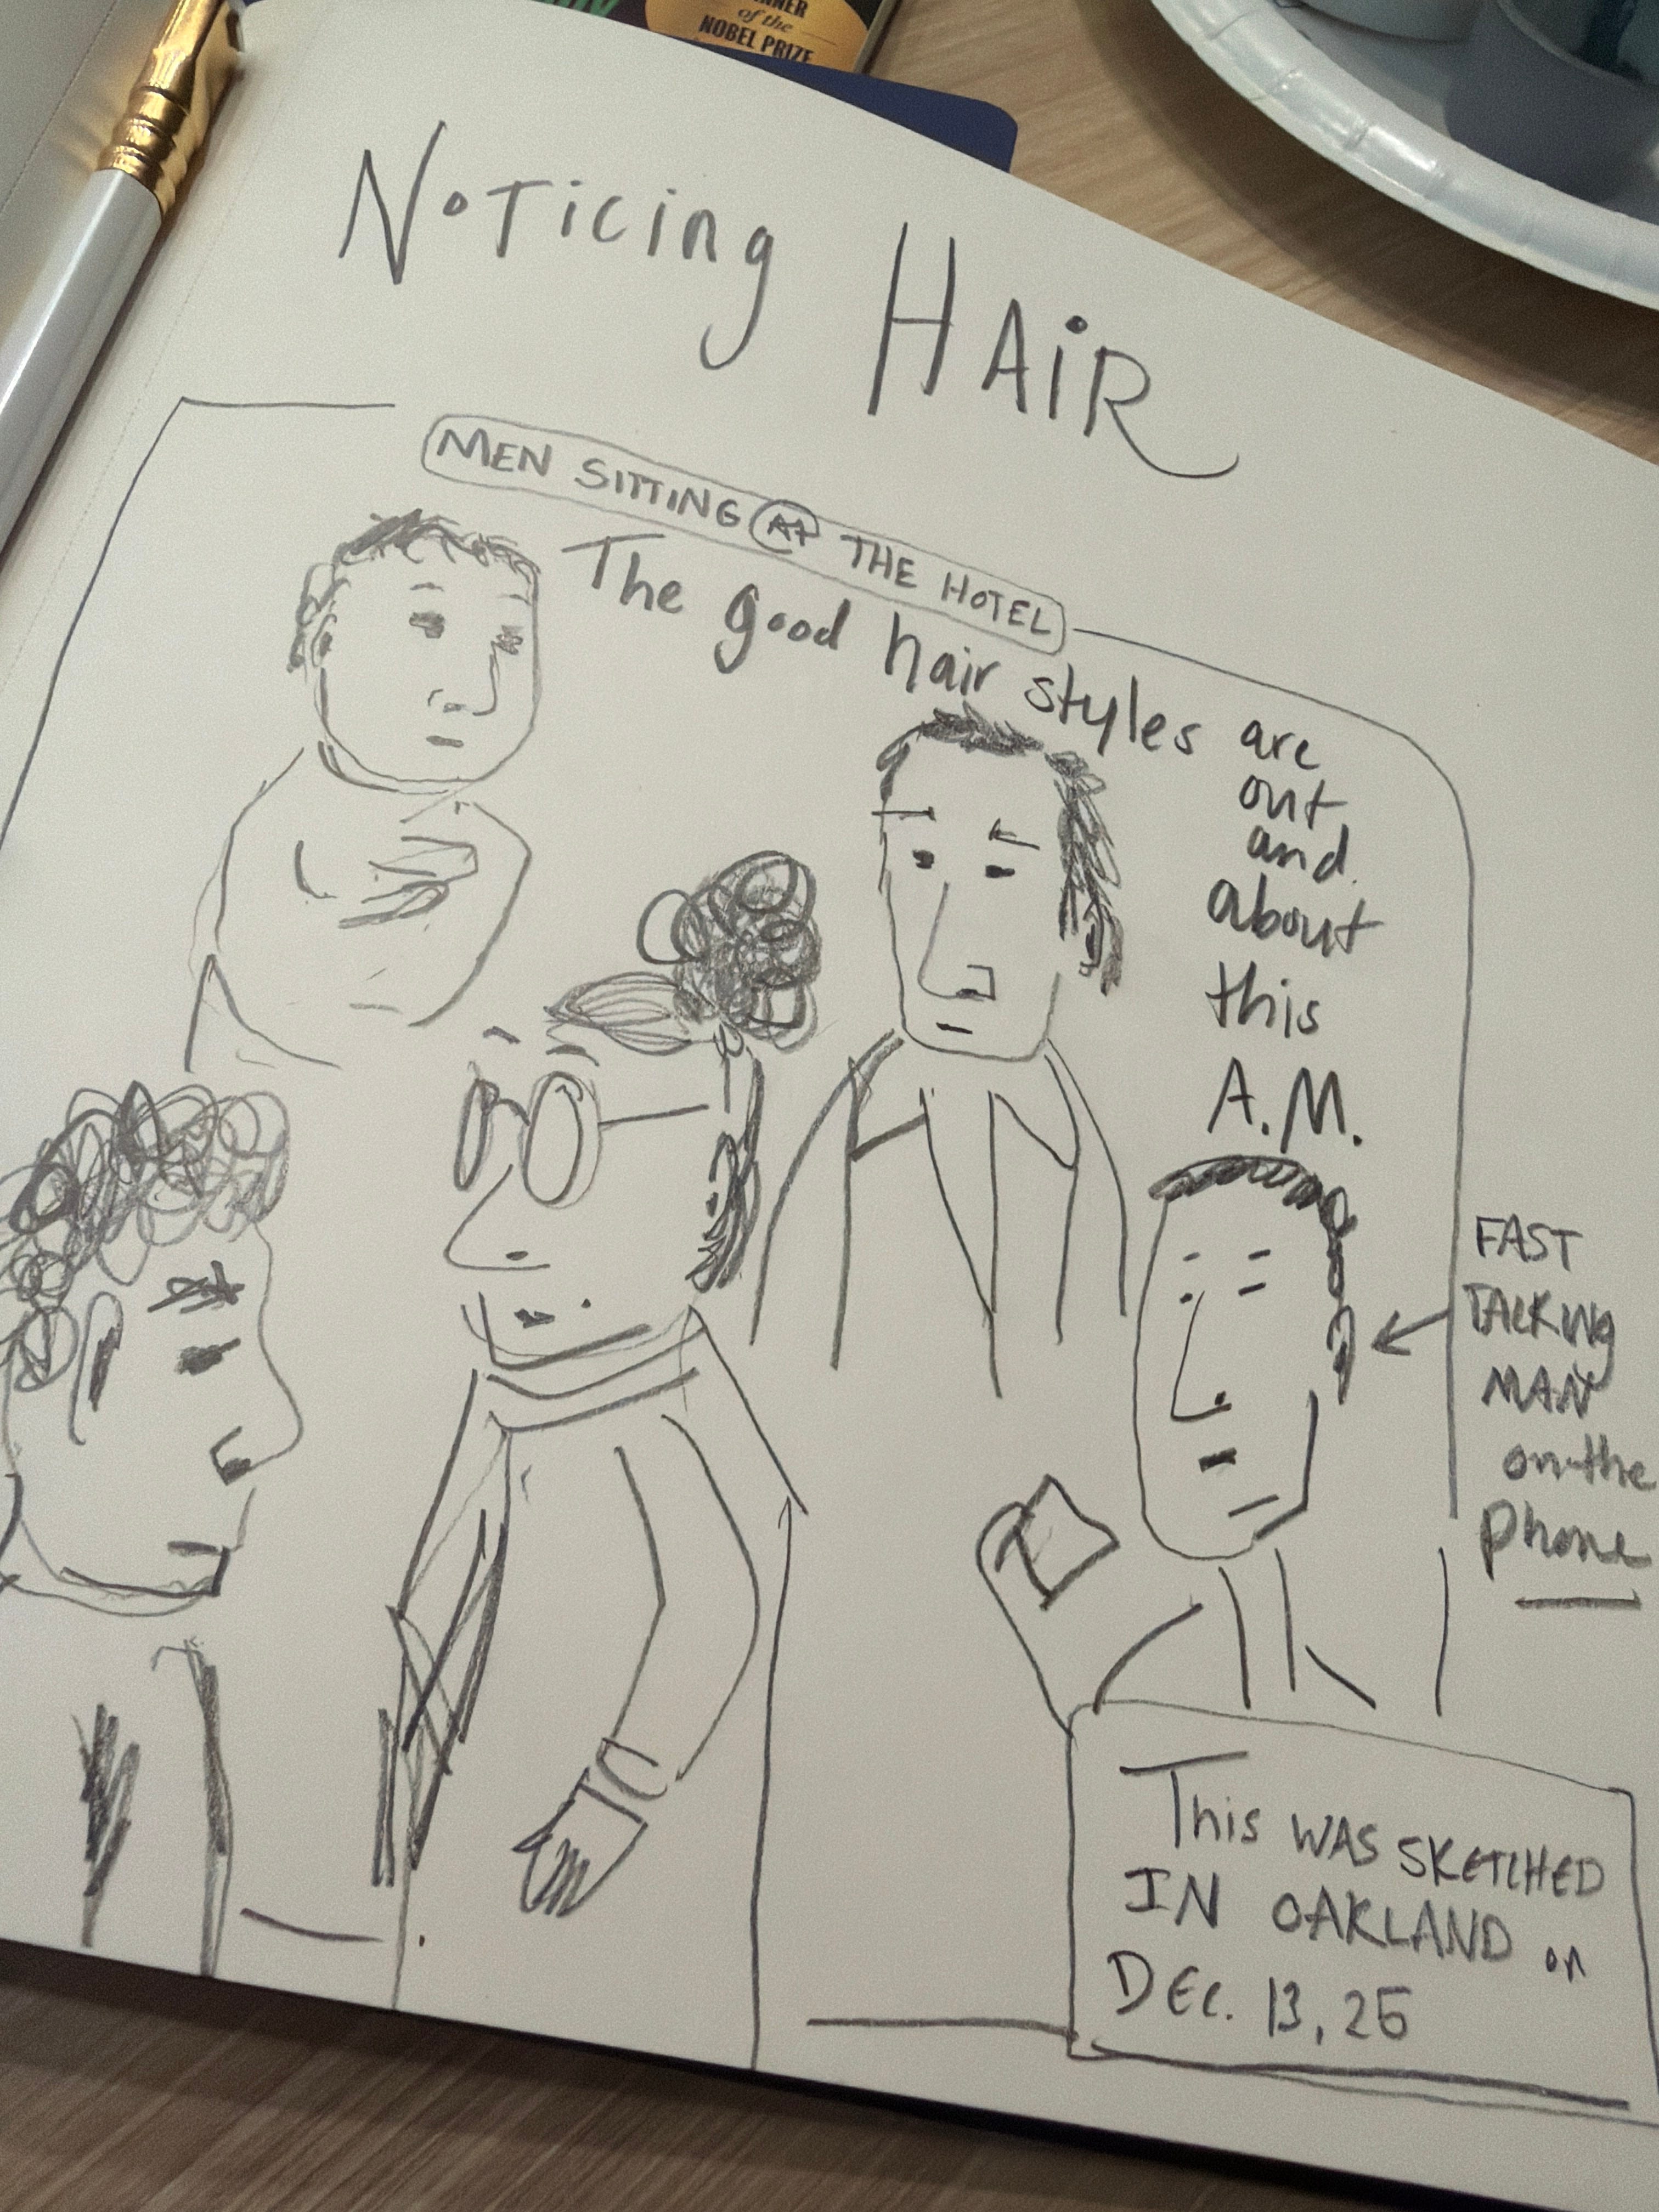 WINNER
of the
NOBEL PRIZE
NoTicing HAiR
MEN SITTING AT THE HOTEL
The good hair styles are
out
and
about
this
A.M.
FAST
TALKING
MAN
on the
phone
This WAS SKETCHED
IN OAKLAND on
DEC. 13, 25